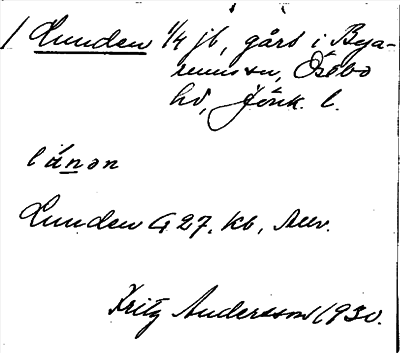 1 Lunden 1/4 jb, gård i Bya-
rums sn, Östbo
hd, Jönk. l.
lánən
Lunden G 27. Kb, Mev.
Fritz Andersson 1930.